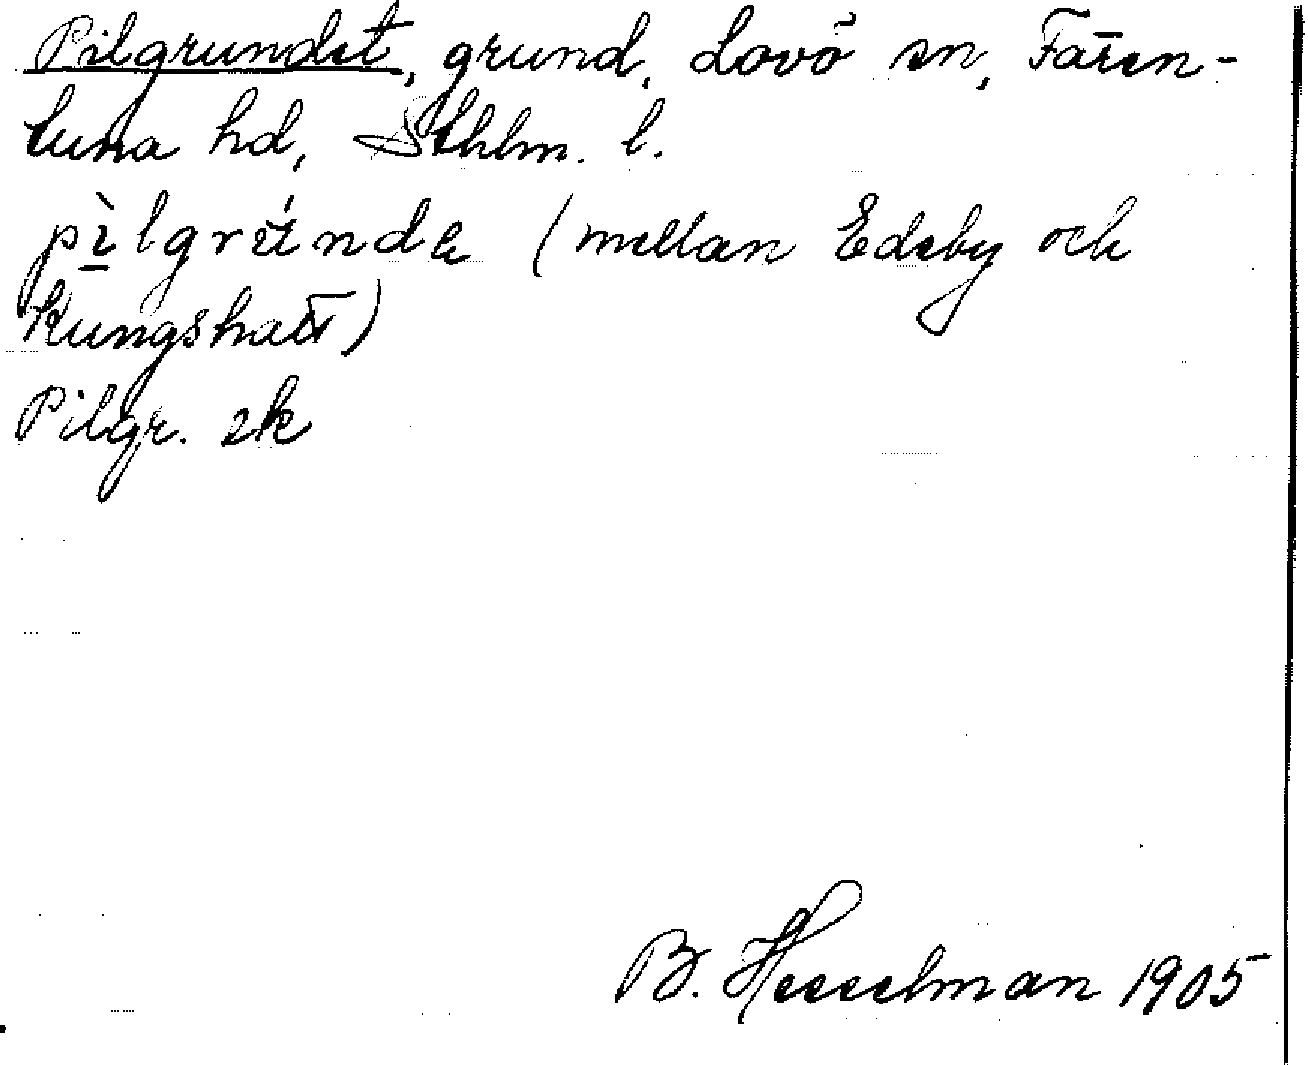 Pilgrundet, grund, Lovö sn, Fären-
tuna hd, Sthlm. l.
pìlgrún̄de (mellan Edeby och
Kungshatt)
Pilgr. sk
B. Hesselman 1905